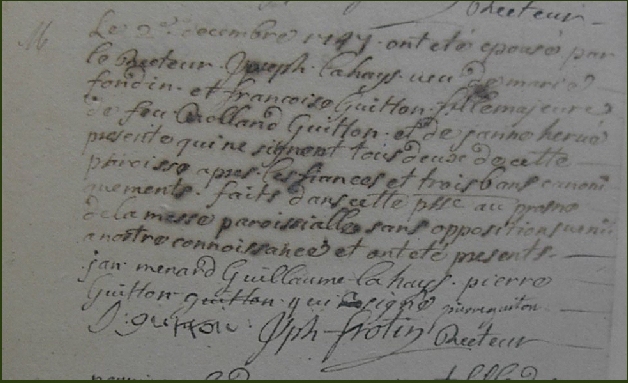 Recteur
M
Le 2e decembre 1747 ont eté epousé par
le Recteur Joseph lahays veu de marie
fondin et francoise Guitton fille majeure
de feu Rolland Guitton et de janne herve
presente qui ne signent tous deux de cette
paroisse apres les fiances et trois bans canoni
quements faits dans cette psse au prosne
de la messe paroissialle sans oppositions venu
a nostre connoissance et ont eté presents
jan menard Guillaume lahays pierre
Guitton guitton qui signe pierre guiton
Jph frotin Recteur